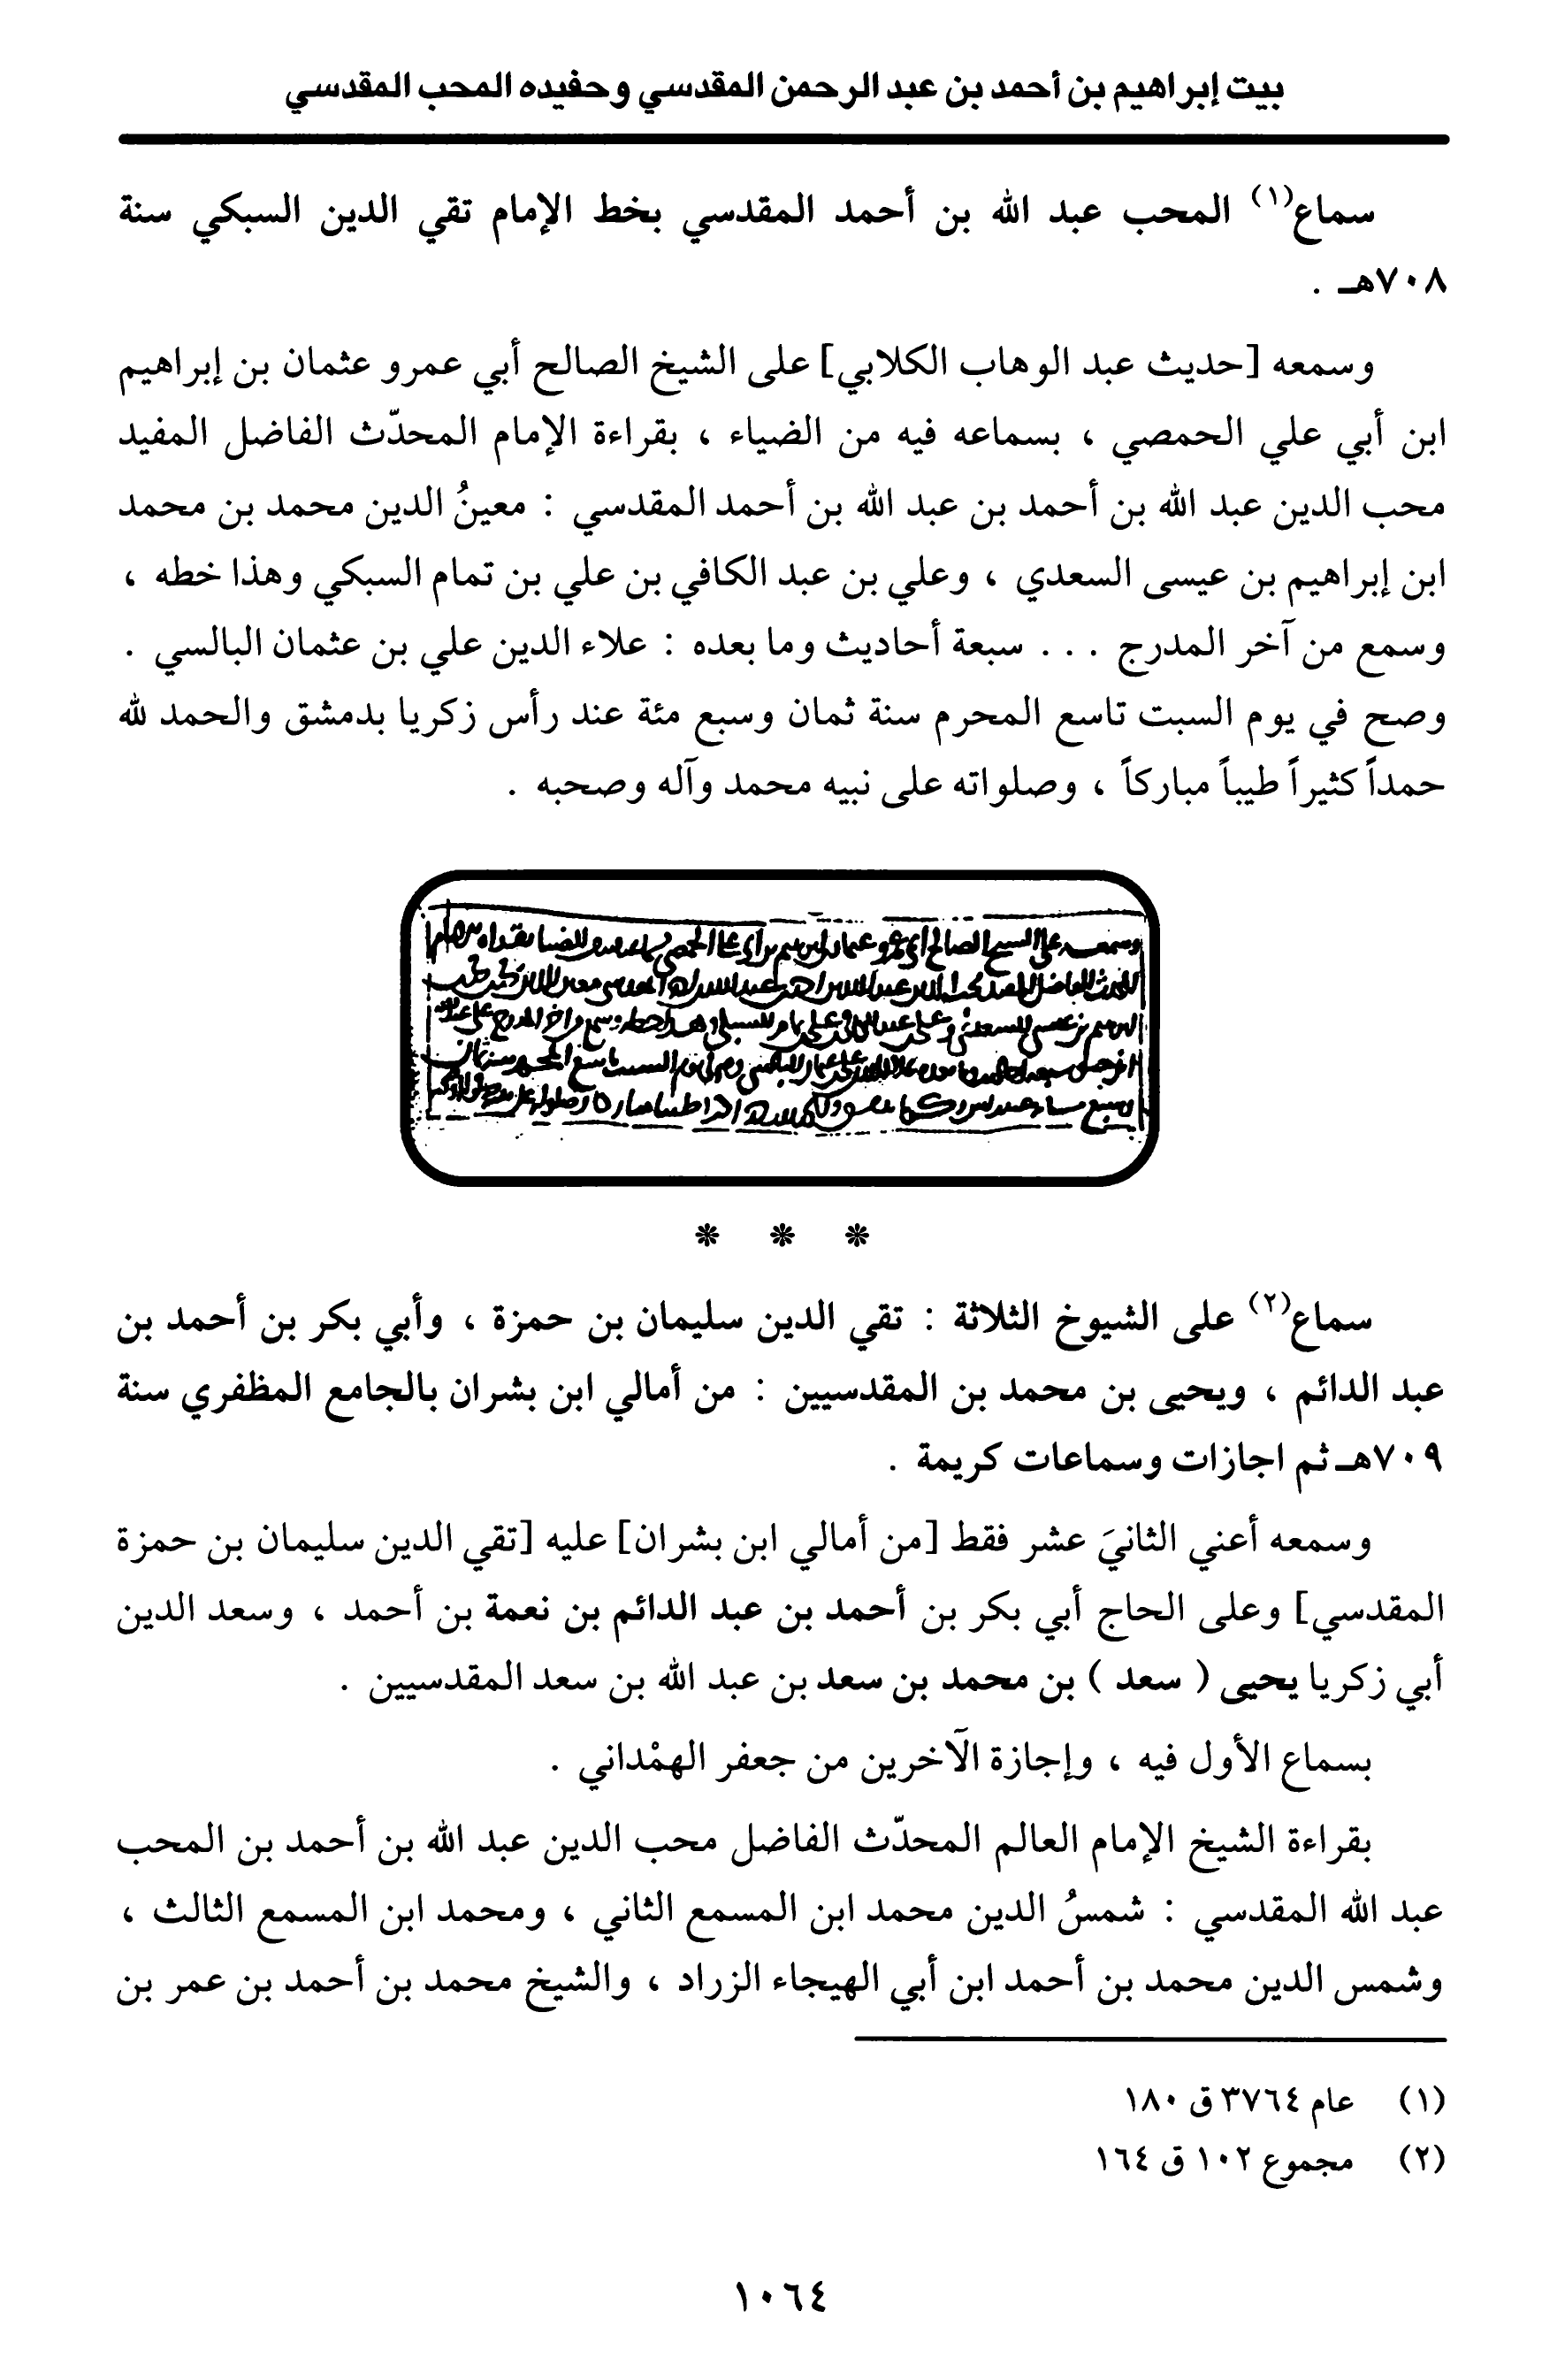 بيت إبراهيم بن أحمد بن عبد الرحمن المقدسي وحفيده المحب المقدسي
سماع(١) المحب عبد الله بن أحمد المقدسي بخط الإمام تقي الدين السبكي سنة
٧٠٨هـ .
وسمعه [حديث عبد الوهاب الكلابي] على الشيخ الصالح أبي عمرو عثمان بن إبراهيم
ابن أبي علي الحمصي ، بسماعه فيه من الضياء ، بقراءة الإمام المحدّث الفاضل المفيد
محب الدين عبد الله بن أحمد بن عبد الله بن أحمد المقدسي : معينُ الدين محمد بن محمد
ابن إبراهيم بن عيسى السعدي ، وعلي بن عبد الكافي بن علي بن تمام السبكي وهذا خطه ،
وسمع من آخر المدرج . . . سبعة أحاديث وما بعده : علاء الدين علي بن عثمان البالسي .
وصح في يوم السبت تاسع المحرم سنة ثمان وسبع مئة عند رأس زكريا بدمشق والحمد لله
حمداً كثيراً طيباً مباركاً ، وصلواته على نبيه محمد وآله وصحبه .
* * *
سماع(٢) على الشيوخ الثلاثة : تقي الدين سليمان بن حمزة ، وأبي بكر بن أحمد بن
عبد الدائم ، ويحيى بن محمد بن المقدسيين : من أمالي ابن بشران بالجامع المظفري سنة
٧٠٩هـ ثم اجازات وسماعات كريمة .
وسمعه أعني الثانيَ عشر فقط [من أمالي ابن بشران] عليه [تقي الدين سليمان بن حمزة
المقدسي] وعلى الحاج أبي بكر بن أحمد بن عبد الدائم بن نعمة بن أحمد ، وسعد الدين
أبي زكريا يحيى ( سعد ) بن محمد بن سعد بن عبد الله بن سعد المقدسيين .
بسماع الأول فيه ، وإجازة الآخرين من جعفر الهمْداني .
بقراءة الشيخ الإمام العالم المحدّث الفاضل محب الدين عبد الله بن أحمد بن المحب
عبد الله المقدسي : شمسُ الدين محمد ابن المسمع الثاني ، ومحمد ابن المسمع الثالث ،
وشمس الدين محمد بن أحمد ابن أبي الهيجاء الزراد ، والشيخ محمد بن أحمد بن عمر بن
(١) عام ٣٧٦٤ ق ١٨٠
(٢) مجموع ١٠٢ ق ١٦٤
١٠٦٤